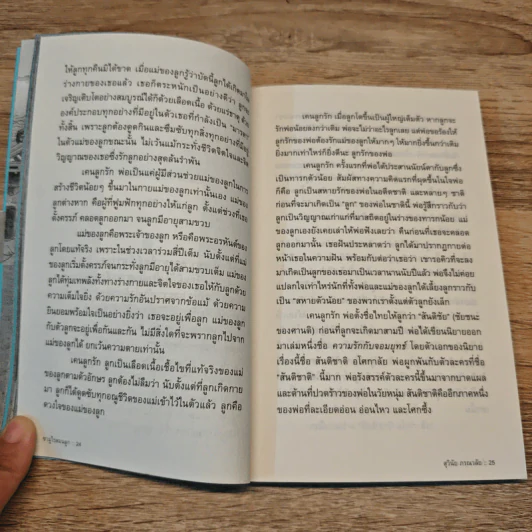 ให้ลูกทุกคืนมิได้ขาด เมื่อแม่ของลูกรู้ว่าบัดนี้ลูกได้เกิดมาใน
ร่างกายของเธอแล้ว เธอก็ตระหนักเป็นอย่างดีว่า ลูก
เจริญเติบโตอย่างสมบูรณ์ได้ก็ด้วยเลือดเนื้อ ด้วยแร่ธาตุ
องค์ประกอบทุกอย่างที่มีอยู่ในตัวเธอที่กำลังเป็น "มารดา"
ทั้งสิ้น เพราะลูกต้องดูดกินและซึมซับทุกสิ่งทุกอย่างที่มีอยู่
ในตัวแม่ของลูกขณะนั้น ไม่เว้นแม้กระทั่งชีวิตจิตใจและจิต
วิญญาณของเธอซึ่งรักลูกอย่างสุดลันรำพัน
เคนลูกรัก พ่อเป็นแค่ผู้มีส่วนช่วยแม่ของลูกในการ
สร้างชีวิตน้อยๆ ขึ้นมาในกายแม่ของลูกเท่านั้นเอง แม่ของ
ลูกต่างหาก คือผู้ที่ฟูมฟักทุกอย่างให้แก่ลูก ตั้งแต่ช่วงที่เธอ
ตั้งครรภ์ คลอดลูกออกมา จนลูกมีอายุสามขวบ
แม่ของลูกคือพระเจ้าของลูก หรือคือพระอรหันต์ของ
ลูกโดยแท้จริง เพราะในช่วงเวลาร่วมสี่ปีเต็ม นับตั้งแต่ที่แม่
ของลูกเริ่มตั้งครรภ์จนกระทั่งลูกมีอายุได้สามขวบเต็ม แม่ของ
ลูกได้ทุ่มเทพลังทั้งทางร่างกายและจิตใจของเธอให้กับลูกด้วย
ความเต็มใจยิ่ง ด้วยความรักอันปราศจากข้อแม้ ด้วยความ
ยินยอมพร้อมใจเป็นอย่างยิ่งว่า เธอจะอยู่เพื่อลูก แม่ของลูก
กับตัวลูกจะอยู่เพื่อกันและกัน ไม่มีสิ่งใดที่จะพรากลูกไปจาก
แม่ของลูกได้ ยกเว้นความตายเท่านั้น
เคนลูกรัก ลูกเป็นเลือดเนื้อเชื้อไขที่แท้จริงของแม่
ของลูกตามตัวอักษร ลูกต้องไม่ลืมว่า นับตั้งแต่ที่ลูกเกิดกาย
มา ลูกก็ได้ดูดซับทุกอณูชีวิตของแม่เข้าไว้ในตัวแล้ว ลูกคือ
ดวงใจของแม่ของลูก
:: 24
เคนลูกรัก เมื่อลูกโตขึ้นเป็นผู้ใหญ่เต็มตัว หากลูกจะ
รักพ่อน้อยลงกว่าเดิม พ่อจะไม่ว่าอะไรลูกเลย แต่พ่อขอร้องให้
ลูกรักของพ่อต้องรักแม่ของลูกให้มากๆ ให้มากยิ่งขึ้นกว่าเดิม
ยิ่งมากเท่าไหร่ก็ยิ่งดีนะ ลูกรักของพ่อ
เคนลูกรัก ครั้งแรกที่พ่อได้ประสานนัยน์ตากับลูกซึ่ง
เป็นทารกตัวน้อย สัมผัสทางความคิดแรกที่ผุดขึ้นในใจพ่อ
ก็คือ ลูกเป็นสหายรักของพ่อในอดีตชาติ และหลายๆ ชาติ
ก่อนที่จะมาเกิดเป็น "ลูก" ของพ่อในชาตินี้ พ่อรู้สึกราวกับว่า
ลูกเป็นวิญญาณเก่าแก่ที่มาสถิตอยู่ในร่างของทารกน้อย แม่
ของลูกเองยังเคยเล่าให้พ่อฟังเลยว่า คืนก่อนที่เธอจะคลอด
ลูกออกมานั้น เธอฝันประหลาดว่า ลูกได้มาปรากฏกายต่อ
หน้าเธอในความฝัน พร้อมกับต่อว่าเธอว่า เขารอคิวที่จะลง
มาเกิดเป็นลูกของเธอมาเป็นเวลานานนับปีแล้ว พ่อจึงไม่ค่อย
แปลกใจเท่าไหร่นักที่ทั้งพ่อและแม่ของลูกได้เลี้ยงลูกราวกับว่า
เป็น "สหายตัวน้อย" ของพวกเราตั้งแต่ตัวลูกยังเล็ก
เคนลูกรัก พ่อตั้งชื่อไทยให้ลูกว่า "สันติชัย" (ชัยชนะ
ของศานติ) ก่อนที่ลูกจะเกิดมาสามปี พ่อได้เขียนนิยายออก
มาเล่มหนึ่งชื่อ ความรักกับจอมยุทธ์ โดยตัวเอกของนิยาย
เรื่องนี้ชื่อ สันติชาติ อโศกาลัย พ่อผูกพันกับตัวละครที่ชื่อ
"สันติชาติ" นี้มาก พ่อรังสรรค์ตัวละครนี้ขึ้นมาจากบาดแผล
และด้านที่ปวดร้าวของพ่อในวัยหนุ่ม สันติชาติคืออีกภาคหนึ่ง
ของพ่อที่ละเอียดอ่อน อ่อนไหว และโศกซึ้ง
สุวินัย ภรณวลัย :: 25